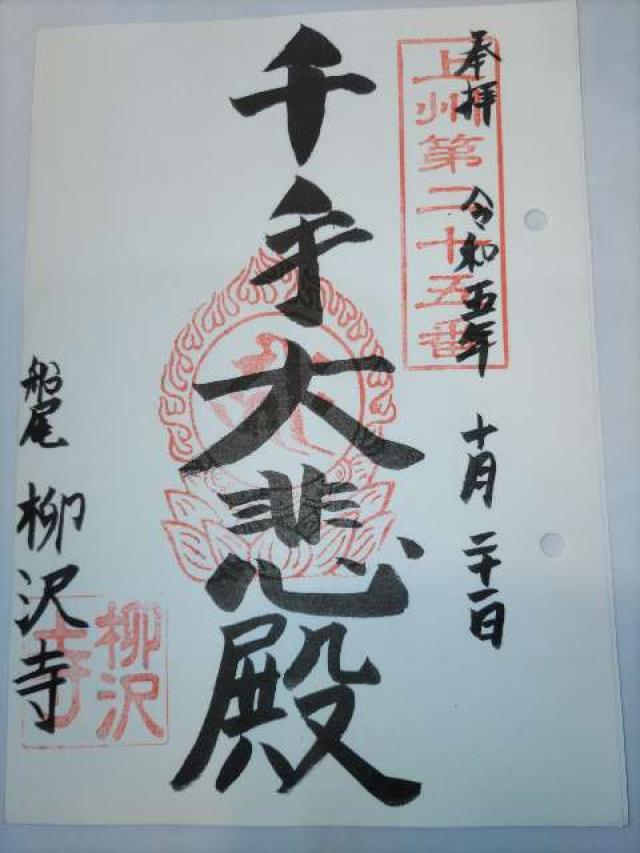 奉拝 令和五年 十月二十一日
上州第二十五番
千手大悲殿
船尾 柳沢寺
柳沢寺